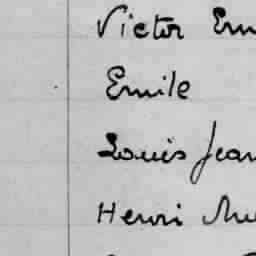 Victor Em
Emile
Louis Jean
Henri